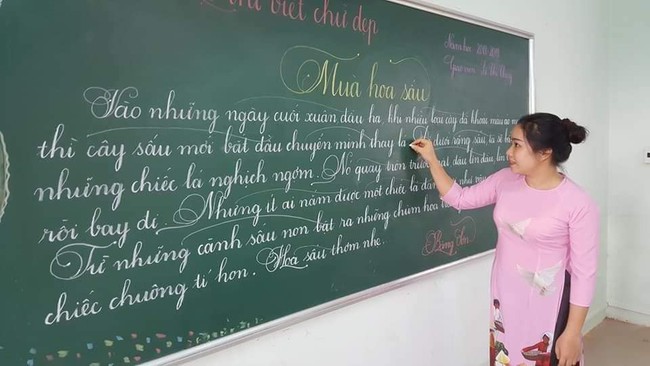 viết chữ đẹp
Năm học:
Giáo viên:
Mùa hoa sấu
Vào những ngày cuối xuân đầu hạ, khi nhiều loài cây đã khoác màu áo
thì cây sấu mới bắt đầu chuyển mình thay lá. đi dưới rặng sấu, ta sẽ
những chiếc lá nghịch ngợm. Nó quay tròn trước đầu, lên
rồi bay đi. Nhưng ít ai nắm được một chiếc lá đang như
Từ những cành sấu non bật ra những chùm hoa
chiếc chuông tí hon. Hoa sấu thơm nhẹ.